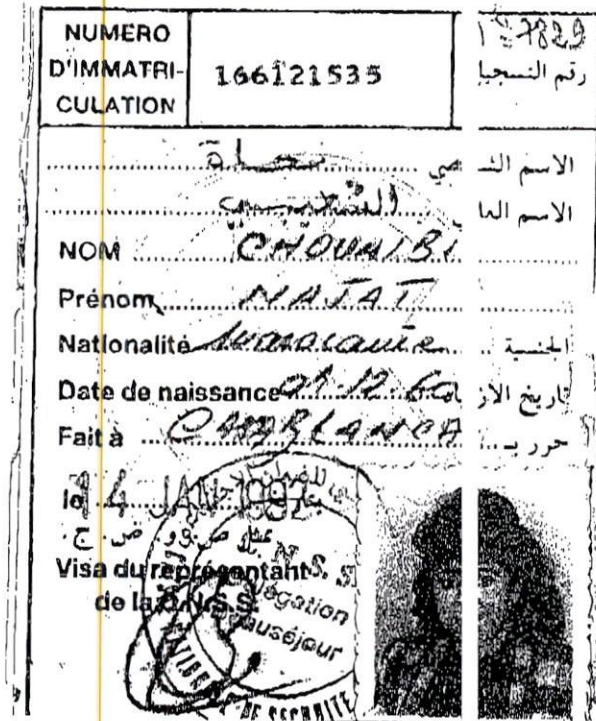 NUMERO
D'IMMATRI-
CULATION
166121535
7829
رقم التسجيل
نجاة
الاسم الشخصي
الشعيبي
الاسم العائلي
NOM CHOUAIBI
Prénom NAJAT
Nationalité Marocaine الجنسية
Date de naissance 01.12.60 تاريخ الازدياد
Fait à CASABLANCA حرر بـ
le 14 JAN 199
ص. و. ض. ج.
Visa du représentant
de la C.N.S.S.
N.S.S
Délégation
Beauséjour
DE SECURITE